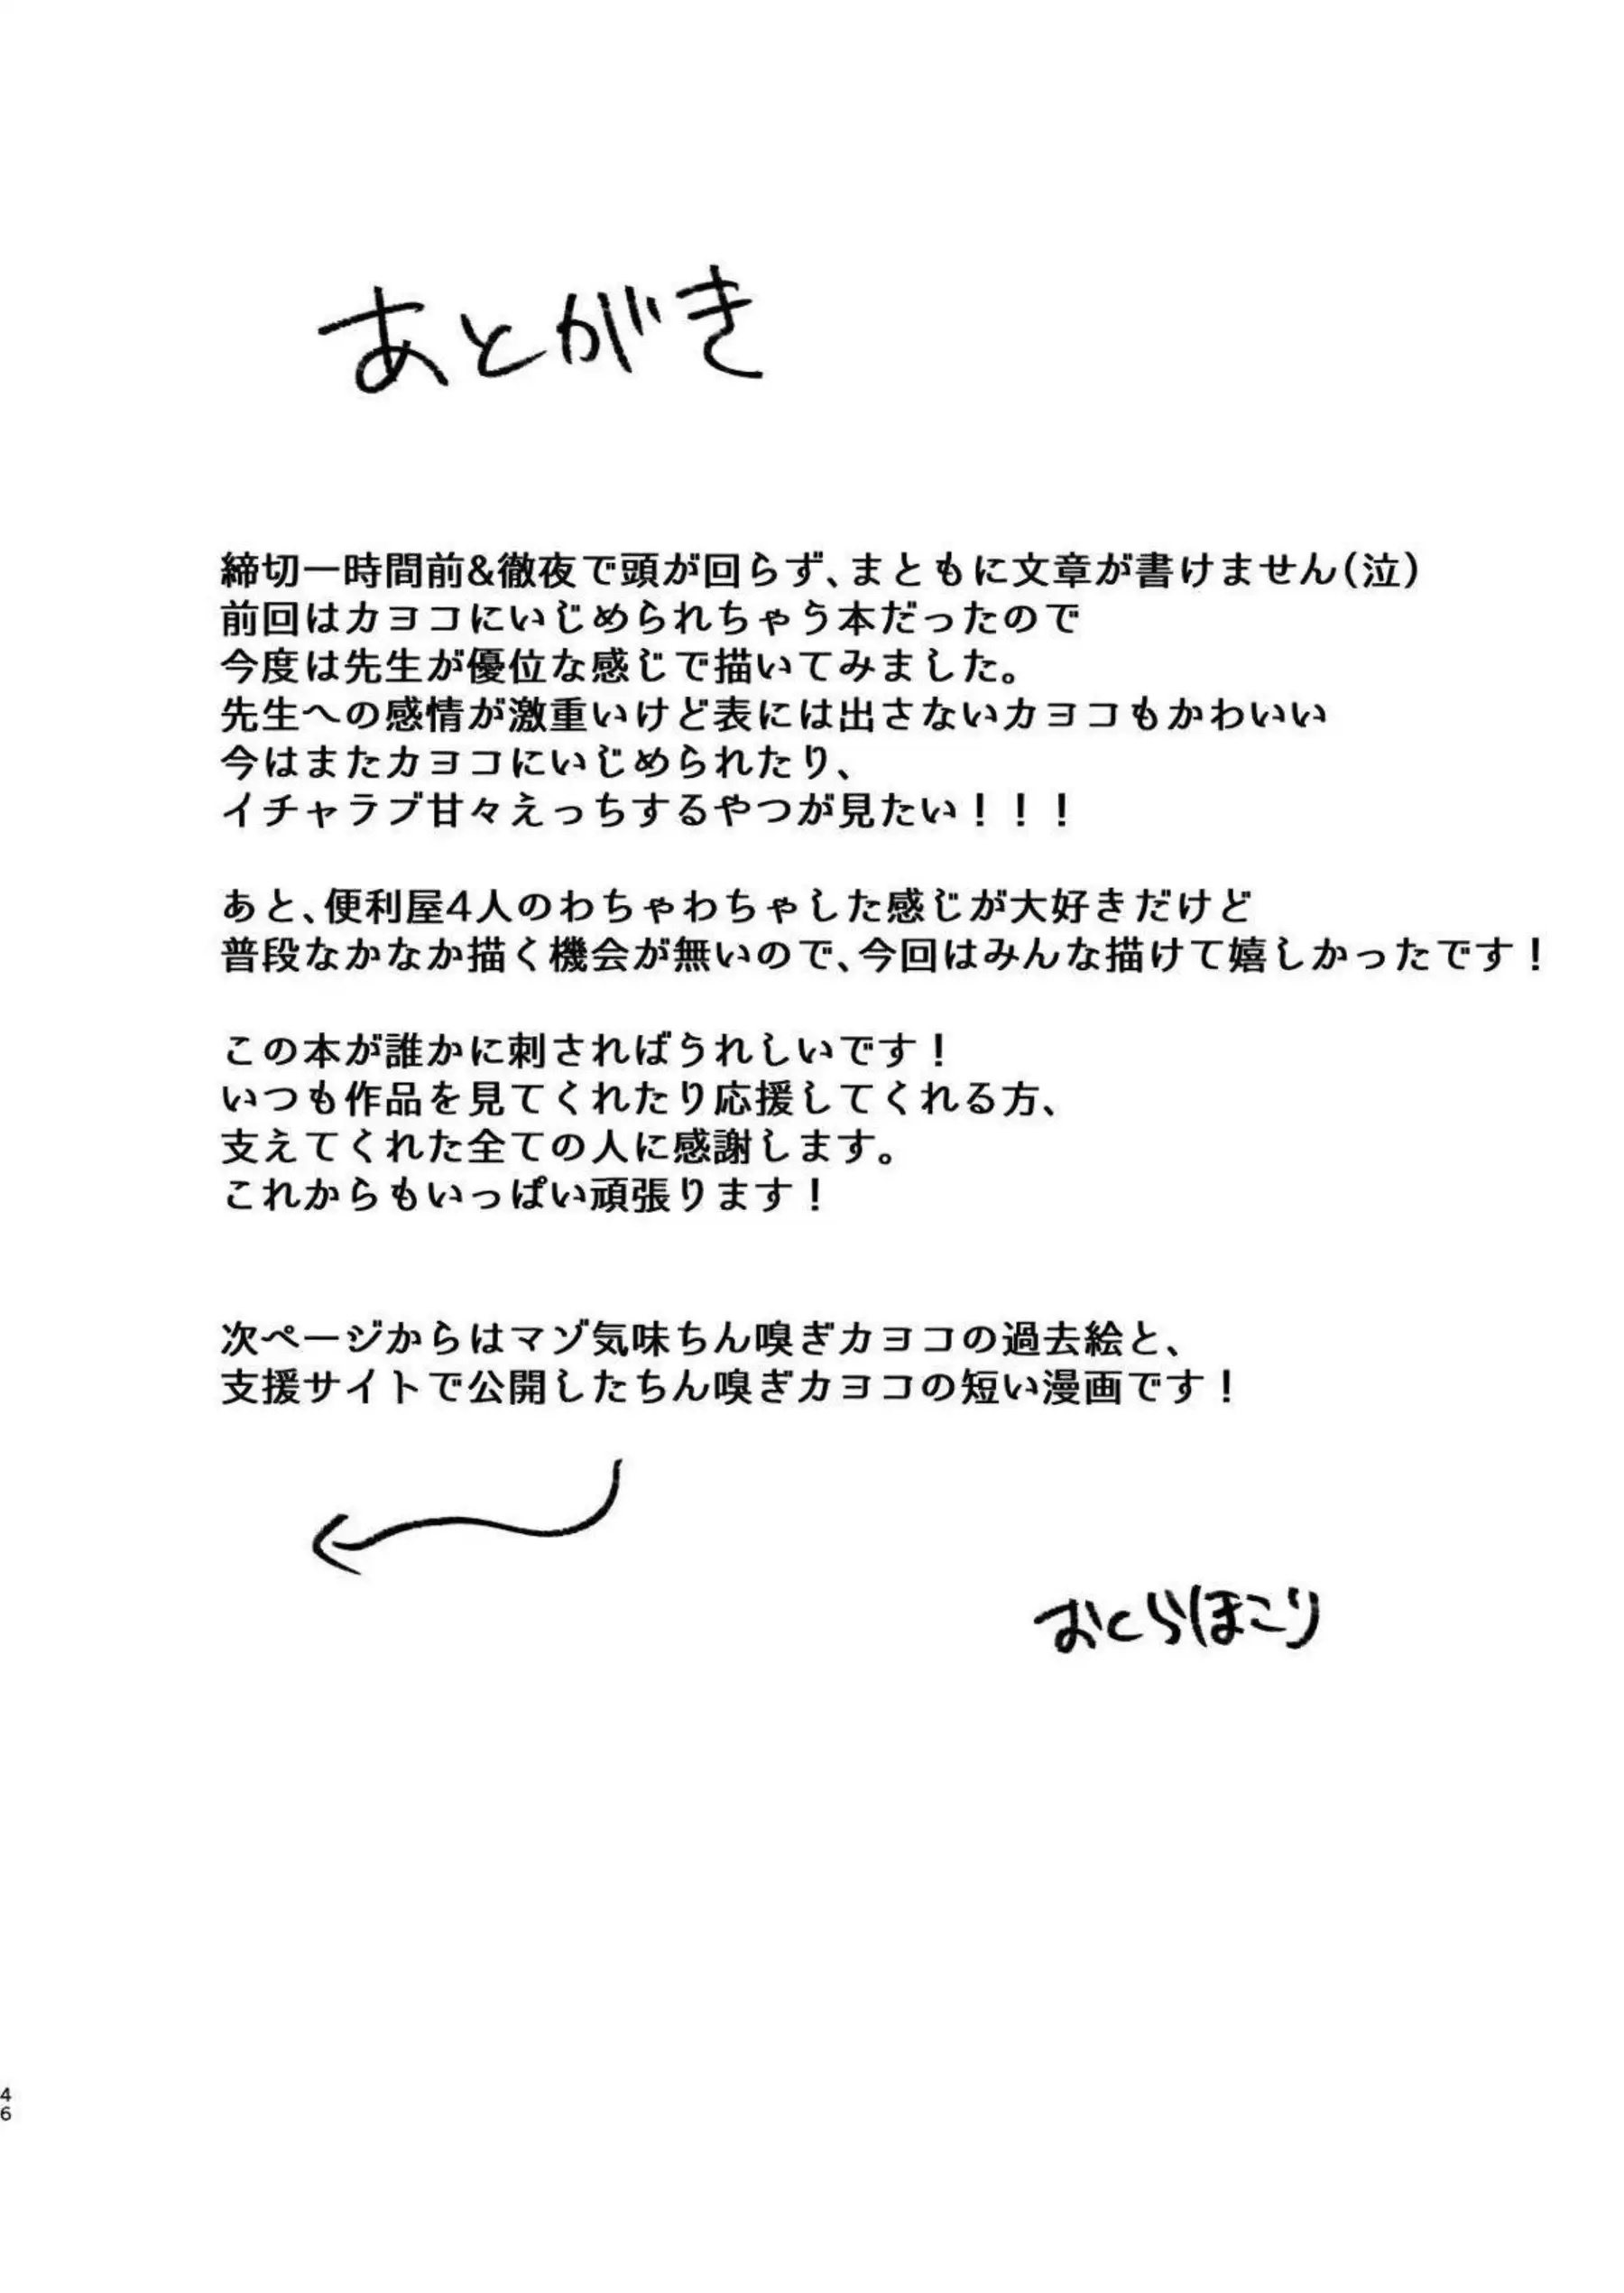 あとがき
締切一時間前&徹夜で頭が回らず、まともに文章が書けません(泣)
前回はカヨコにいじめられちゃう本だったので
今度は先生が優位な感じで描いてみました。
先生への感情が激重いけど表には出さないカヨコもかわいい
今はまたカヨコにいじめられたり、
イチャラブ甘々えっちするやつが見たい！！！
あと、便利屋4人のわちゃわちゃした感じが大好きだけど
普段なかなか描く機会が無いので、今回はみんな描けて嬉しかったです！
この本が誰かに刺さればうれしいです！
いつも作品を見てくれたり応援してくれる方、
支えてくれた全ての人に感謝します。
これからもいっぱい頑張ります！
次ページからはマゾ気味ちん嗅ぎカヨコの過去絵と、
支援サイトで公開したちん嗅ぎカヨコの短い漫画です！
おくらほこり
46